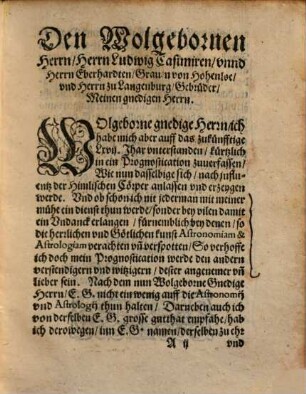 Den Wolgebornen
Herrn/Herrn Ludwig Casimiren/vnnd
Herrn Eberhardten/Grauen von Hohenloe/
vnd Herrn zu Langenburg/Gebrüder/
Meinen gnedigen Herrn.
WOlgeborne gnedige Herrn/ich
habe mich aber auff das zukünfftige
Lxvij. Jhar vnterstanden/kürtzlich
in ein Prognostication zuuerfassen/
Wie nun dasselbige sich/nach influ-
entz der Himlischen Cörper anlassen vnd erzeygen
werde. Vnd ob schon ich nit jederman mit meiner
mühe ein dienst thun werde/sonder bey vilen damit
ein Vndanck erlangen/fürnemblich bey denen/so
dit herrlichen vnd Götlichen kunst Astronomiam &
Astrologiam verachten vñ verspotten/So verhoffe
ich doch mein Prognostication werde den andern
verstendigern vnd witzigern/dester angenemer vñ
lieber sein. Nach dem nun Wolgeborne Gnedige
Herrn/E. G. nicht ein wenig auff die Astronomij
vnd Astrologij thun halten/Darneben auch ich
von derselben E. G. grosse gutthat empfähe/hab
ich derowegen/inn E. G. namen/derselben zu ehr
A ij vnd